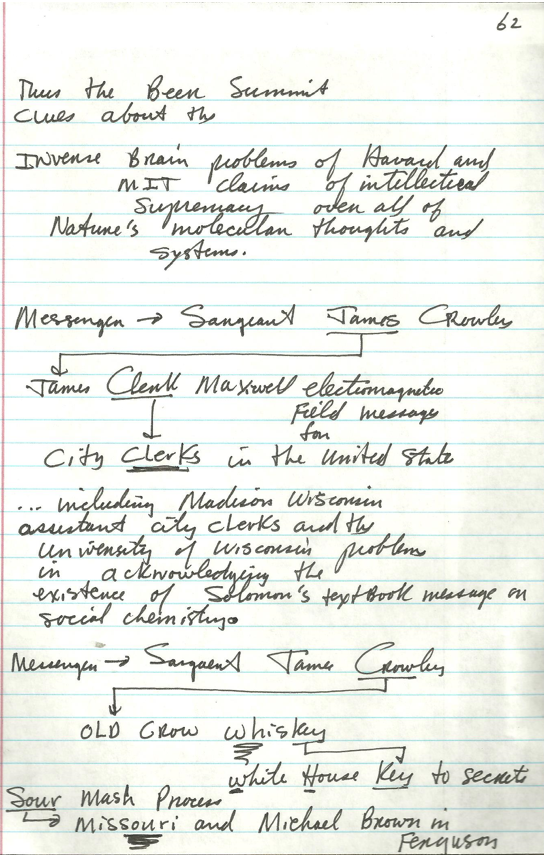 62
Thus the Beer Summit
clues about the
Inverse Brain problems of Havard and
MIT claims of intellectical
Supremacy over all of
Nature's molecular thoughts and
systems.
Messenger → Sargeant James Crowley
James Clerk Maxwell electromagnetic
Field messages
for
City Clerks in the United State
... including Madison Wisconsin
assistant city clerks and the
University of Wisconsin problem
in acknowledging the
existence of Solomon's textBook message on
social chemistry.
Messenger → Sargeant James Crowley
OLD Crow whiskey
white House Key to secrets
Sour Mash Process
Missouri and Michael Brown in
Ferguson